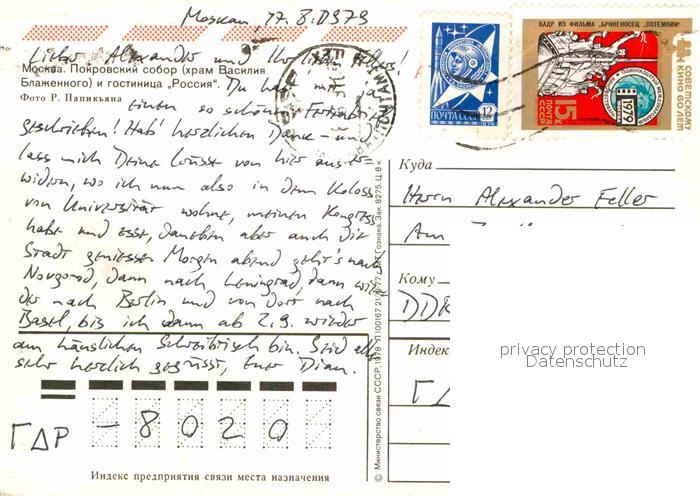 Moskau 17. 8. 1979
Lieber Alexander und Ihr lieben Fellers!
Москва. Покровский собор (храм Василия
Блаженного) и гостиница „Россия".
Фото Р. Папикьяна
Du hast mir ja
einen so schönen Ferienbrief
geschrieben! Hab' herzlichen Dank – und
lass mich Deine Grüsse von hier aus er-
widern, wo ich nun also in dem Koloss
von Universität wohne, meinen Kongress
habe und esse, daneben aber auch die
Stadt geniesse. Morgen abend geht's nach
Novgorod, dann nach Leningrad, dann wie-
der nach Berlin und von dort nach
Basel, bis ich dann ab 2.9. wieder
am häuslichen Schreibtisch bin. Seid alle
sehr herzlich gegrüsst, Euer
ГДР – 8020
Индекс предприятия связи места назначения
© Министерство связи СССР, 1978.
Гознака. Зак. 8275. Ц. 8 к.
ПОЧТА СССР 12 К
КАДР ИЗ ФИЛЬМА „БРОНЕНОСЕЦ „ПОТЕМКИН"
СОВЕТСКОМУ КИНО 60 ЛЕТ
15 К ПОЧТА СССР
1979
Куда
Herrn Alexander Feller
Am
Кому
DDR
Индекс
ГД
privacy protection
Datenschutz